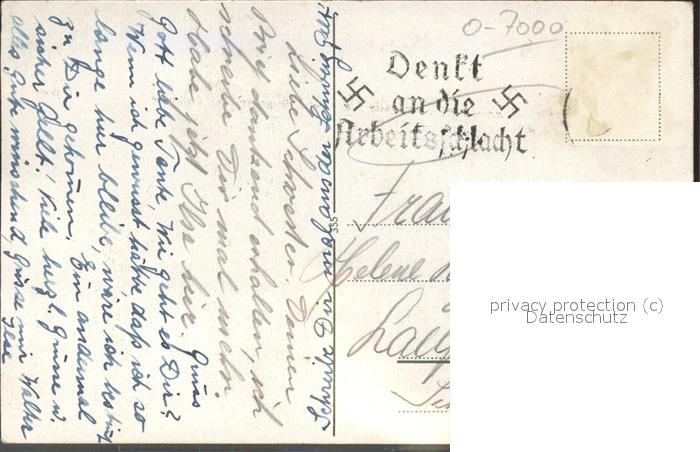 0-7000
Denkt
an die
Arbeitsschlacht
Frau
Helene
privacy protection (c)
Datenschutz
555
Liebe Schwester. Deinen
Brief dankend erhalten, ich
schreibe Dir mal mehr.
Habe jetzt Ilse hier. Gruss
Gott liebe Tante, Wie geht es Dir?
Wenn ich gewusst hätte daß ich so
lange hier bleibe, wäre ich bestimt
zu Dir gekommen. Ein andermal
sicher gell! Viele herzl. Grüsse u.
alles Gute wünschend, Grüsse mir Walter
Ilse